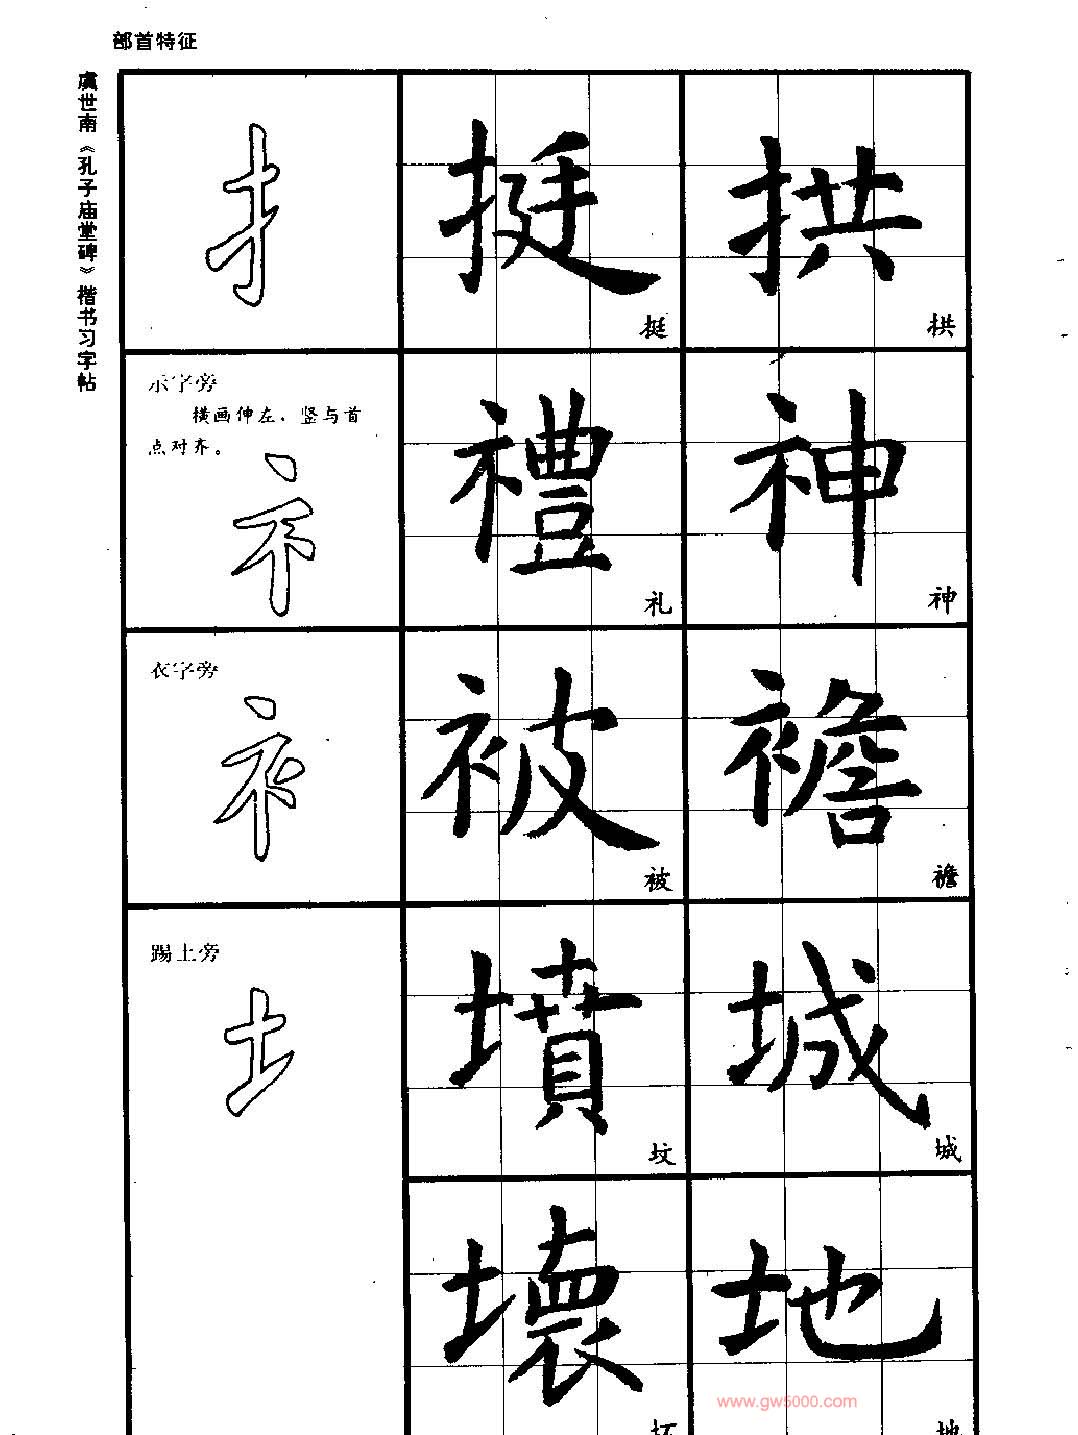 部首特征
虞世南《孔子庙堂碑》楷书习字帖
扌
挺
挺
拱
拱
示字旁
横画伸左，竖与首
点对齐。
礻
禮
礼
神
神
衣字旁
衤
被
被
襜
襜
踢土旁
土
墳
坟
城
城
壞
坏
地
地
www.gw5000.com